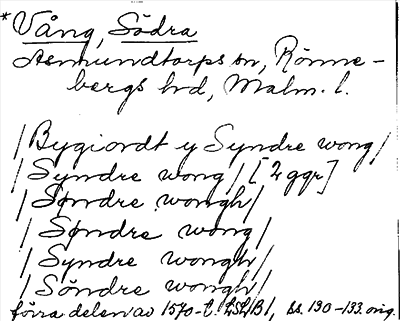 *Vång, Södra
Asmundtorps sn, Rönne-
bergs hd, Malm. l.
/Bygiordt y Syndre wong/
/Syndre wong/ [2 ggr]
/Søndre wongh/
/Søndre wong/
/Syndre wongh/
/Söndre wongh/
förra delen av 1570-t. LSLB1, ss. 130-133. orig.